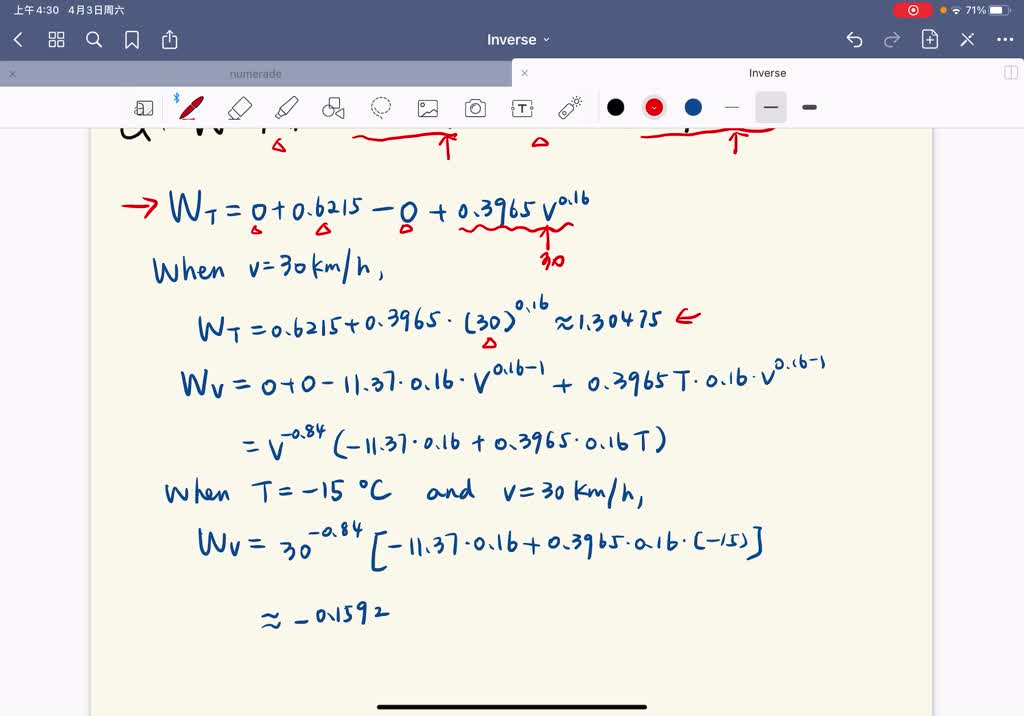 上午4:30 4月3日周六
71%
Inverse
numerade
Inverse
→ W_T = 0 + 0.6215 − 0 + 0.3965 V^0.16
30
When v=30 km/h,
W_T = 0.6215 + 0.3965 · (30)^0.16 ≈ 1.30475 ←
W_V = 0+0 − 11.37 · 0.16 · V^0.16−1 + 0.3965 T · 0.16 · V^0.16−1
= V^−0.84 (−11.37 · 0.16 + 0.3965 · 0.16 T)
When T = −15 °C and v = 30 km/h,
W_V = 30^−0.84 [−11.37 · 0.16 + 0.3965 · 0.16 · (−15)]
≈ −0.1592